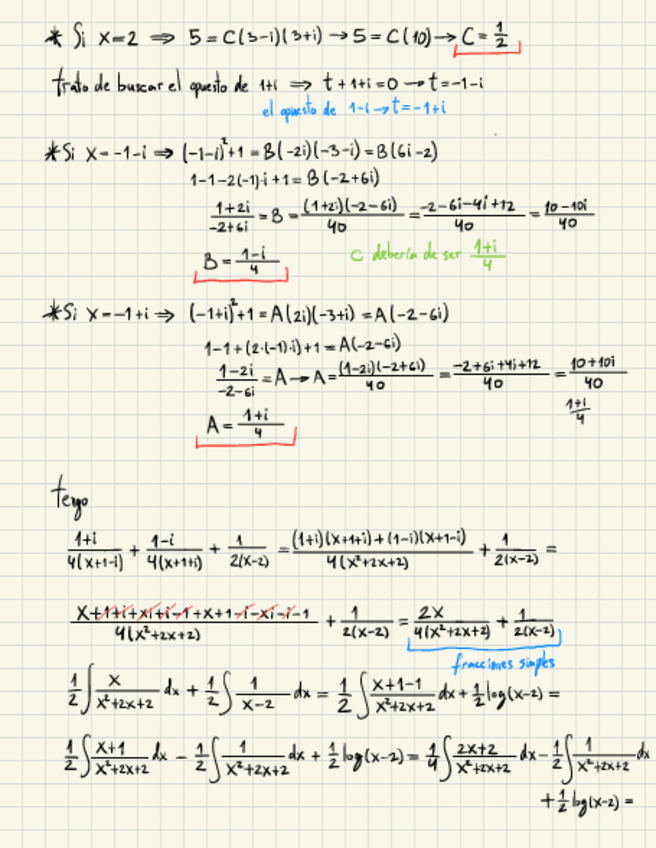 * Si x=2 ⇒ 5=C(3-i)(3+i)→5=C(10)→C=1/2
trato de buscar el opuesto de 1+i ⇒ t+1+i=0→t=-1-i
el opuesto de 1-i→t=-1+i
*Si x=-1-i ⇒ (-1-i)²+1=B(-2i)(-3-i)=B(6i-2)
1-1-2(-1)·i+1=B(-2+6i)
(1+2i)/(-2+6i)=B=((1+2i)(-2-6i))/40=(-2-6i-4i+12)/40=(10-10i)/40
B=(1-i)/4
C debería de ser (1+i)/4
*Si x=-1+i ⇒ (-1+i)²+1=A(2i)(-3+i)=A(-2-6i)
1-1+(2·(-1)·i)+1=A(-2-6i)
(1-2i)/(-2-6i)=A→A=((1-2i)(-2+6i))/40=(-2+6i+4i+12)/40=(10+10i)/40
(1+i)/4
A=(1+i)/4
tengo
(1+i)/(4(x+1-i))+(1-i)/(4(x+1+i))+1/(2(x-2))=((1+i)(x+1+i)+(1-i)(x+1-i))/(4(x²+2x+2))+1/(2(x-2))=
(x+1+i+xi+i-1+x+1-i-xi-i-1)/(4(x²+2x+2))+1/(2(x-2))=2x/(4(x²+2x+2))+1/(2(x-2))
fracciones simples
1/2∫x/(x²+2x+2)dx+1/2∫1/(x-2)dx=1/2∫(x+1-1)/(x²+2x+2)dx+1/2log(x-2)=
1/2∫(x+1)/(x²+2x+2)dx-1/2∫1/(x²+2x+2)dx+1/2log(x-2)=1/4∫(2x+2)/(x²+2x+2)dx-1/2∫1/(x²+2x+2)dx
+1/2log(x-2)=